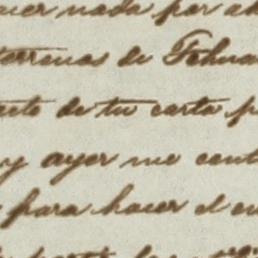 hacer nada por ah
terrenos de Tehua
acto de tu carta p
y ayer me cont
para hacer el en